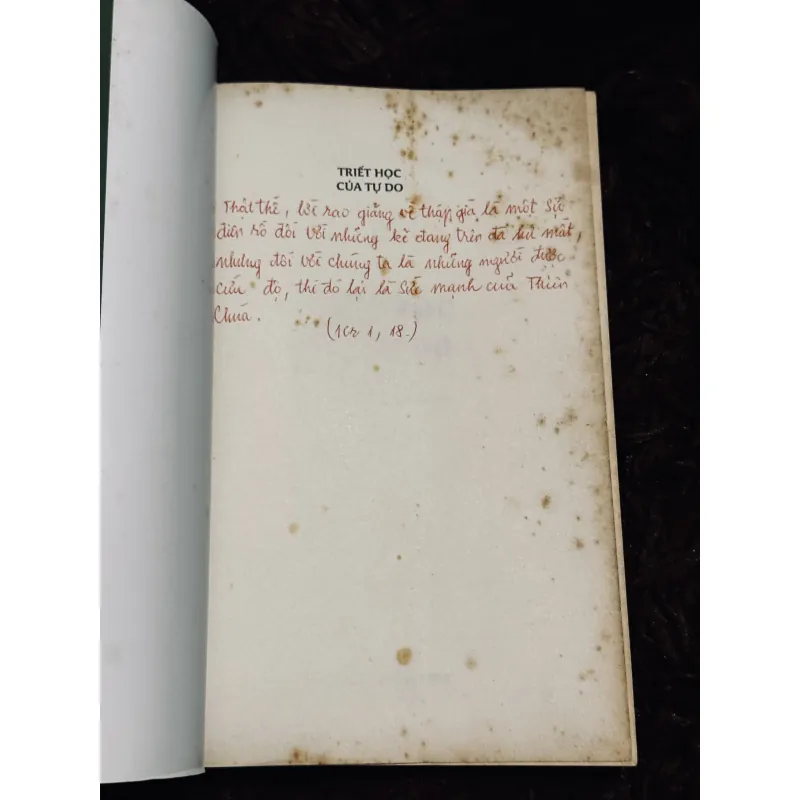 TRIẾT HỌC
CỦA TỰ DO
Thật thế, lời rao giảng về thập giá là một sự
điên rồ đối với những kẻ đang trên đà hư mất,
nhưng đối với chúng ta là những người được
cứu độ, thì đó lại là sức mạnh của Thiên
Chúa.
(1cr 1, 18.)